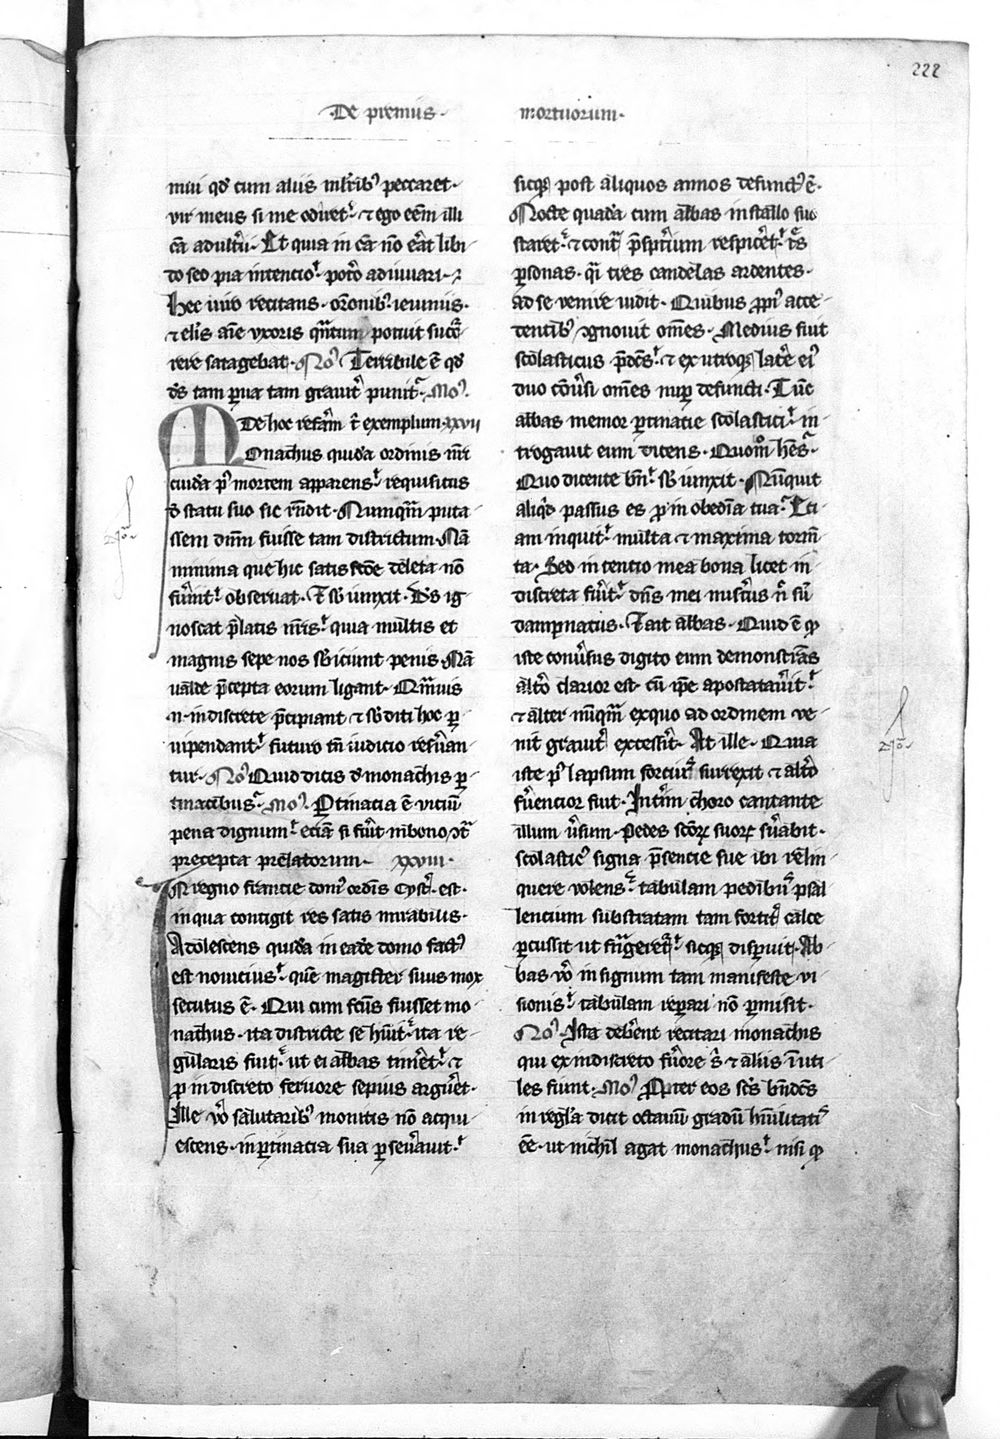 222
·De premiis· mortuorum·
miui qd̛ cum aliis ml̛rib⁹ peccaret·
vir meus si me odiret· ⁊ ego eēm illi
cā adult̛ii· Et quia in cā nō erāt libi-
do seo pia intencio· pot̛o adiuuari·
hec uiro recitans· or̄onib⁹ ieiuniis·
⁊ el̛is aīe vxoris qn̄tum potuit succur-
rere satagebat· No⁹ Terribile ē qd̛
ds̄ tam parua tam grauit̛ punit· Mo⁹·
De hoc refām t̛ exemplum· xxvii
Monachus quidā ordinis nr̄i
cuidā p⁹ mortem apparens· requisitus
de statu suo sic rn̄dit· Numquā puta-
ssem dn̄m fuisse tam districtum· Nā
minima que hic satisfcōe deleta nō
fuīnt· obseruat· Et sb̛iunxit· Ds̄ ig-
noscat p̄latis nr̄is· quia multis et
magnis sepe nos sb̛iciunt penis· Nā
ualde p̄cepta eorum ligant· Qm̄uis
·n· indiscrete p̄cipiant ⁊ sb̛diti hoc p̱-
uipendant· futuro tn̄ iudicio refuan-
tur· No⁹ Quid dicis de monachis p̱-
tinacibus· Mo⁹· P̱tinacia ē viciū
pena dignum· eciā si fuit in bono ɔt̄
precepta prelatorum· xxviii·
In regno francie dom⁹ ordīs Cyst̛· est·
in qua contigit res satis mirabilis·
Adolescens quidā in eadē domo fact⁹
est nouicius· quē magister suus mox
secutus ē· Qui cum fcūs fuisset mo-
nachus· ita districte se hūit· ita re-
gularis fuit· ut ei abbas timēt· ⁊
p̱ indiscreto feruore sepius arguet·
Ille vō salutarib⁹ monitis nō acqui-
escens· in p̱tinacia sua p̱seuāuit·
sicq̱ post aliquos annos defunct⁹ ē·
Nocte quadā cum abbas in stallo suo
staret· ⁊ contra p̄sp̄tium respicet· t̄s
p̱sonas· q̄i tres candelas ardentes·
ad se venire uidit· Quibus pp̄n⁹ acce-
dentib⁹ ɔgnouit omēs· Medius fuit
scolasticus pc̄ds· ⁊ ex utroq̱ latē ei⁹
duo cōưsi omēs nup̱ defuncti· Tūc
abbas memor p̱tinacie scolastici· in-
trogauit eum dicens· Quom̄ hēs·
Quo dicente bn̄· sb̛iunxit· Nūquit
aliqd̛ passus es p̱ in obediā tua· Eci-
am inquit· multa ⁊ maxima torm̄-
ta· Sed intencio mea bona licet in-
discreta fuit· dn̄s mei misert̛us n̄ sū
dampnatus· Et ait abbas· Quid ē qd̛
iste conưsus digito eum demonstrās
alto clarior est· cū ip̄e apostatauit·
⁊ alter nūqm̄ ex quo ad ordinem ve-
nit grauit̛ excessit· At ille· Quia
iste p⁹ lapsum forcius surrexit ⁊ alto
fuencior fuit· Intīm choro cantante
illum ưsum· Pedes scōꝝ suoꝝ sưabit·
scolastic⁹ signa p̄sencie sue ibi relin-
quere volens· tabulam pedibus psal-
lencium substratam tam fortit̛ calce
p̱cussit ut frāgeret· sicq̱ disp̱uit· Ab-
bas vō in signum tam manifeste vi-
sionis· tabulam rep̱ari nō p̱misit·
No⁹· Ista debent recitari monachis
qui ex indiscreto fuōre s̄ ⁊ aliis īuti-
les fiunt· Mo⁹ Pp̄ter eos scs̄ bn̄dcs̄
in regla dicit octauū gradū humilitatis
eē· ut nichil agat monachus· nisi qd̛